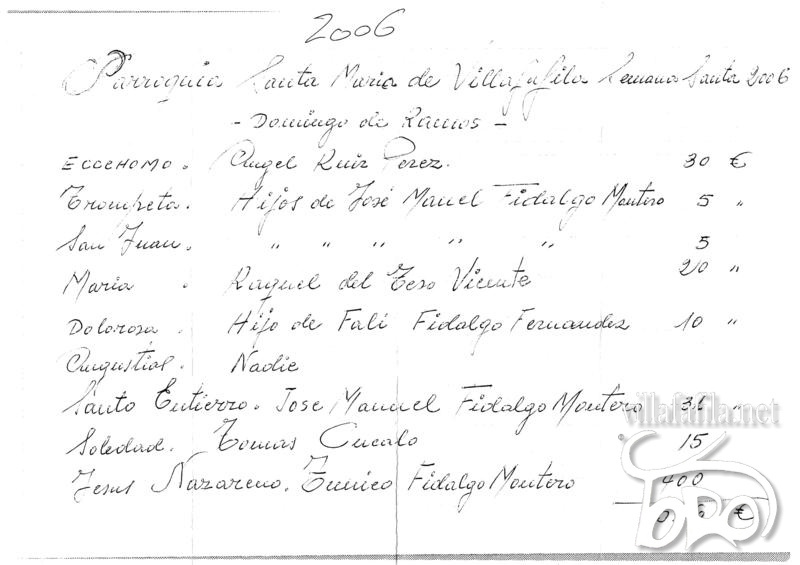 2006
Parroquia Santa Maria de Villafafila Semana Santa 2006
- Domingo de Ramos -
ECCEHOMO. Angel Ruiz Perez. 30 €
Trompeta. Hijos de José Manuel Fidalgo Montero 5 "
San Juan. " " " " " 5
Maria . Raquel del Teso Vicente 20 "
Dolorosa . Hijo de Fali Fidalgo Fernandez 10 "
Angustias. Nadie
Santo Entierro. Jose Manuel Fidalgo Montero "
villafafila.net
Soledad. Tomas Cucalo 15
Jesus Nazareno. Fidalgo Montero 400
€